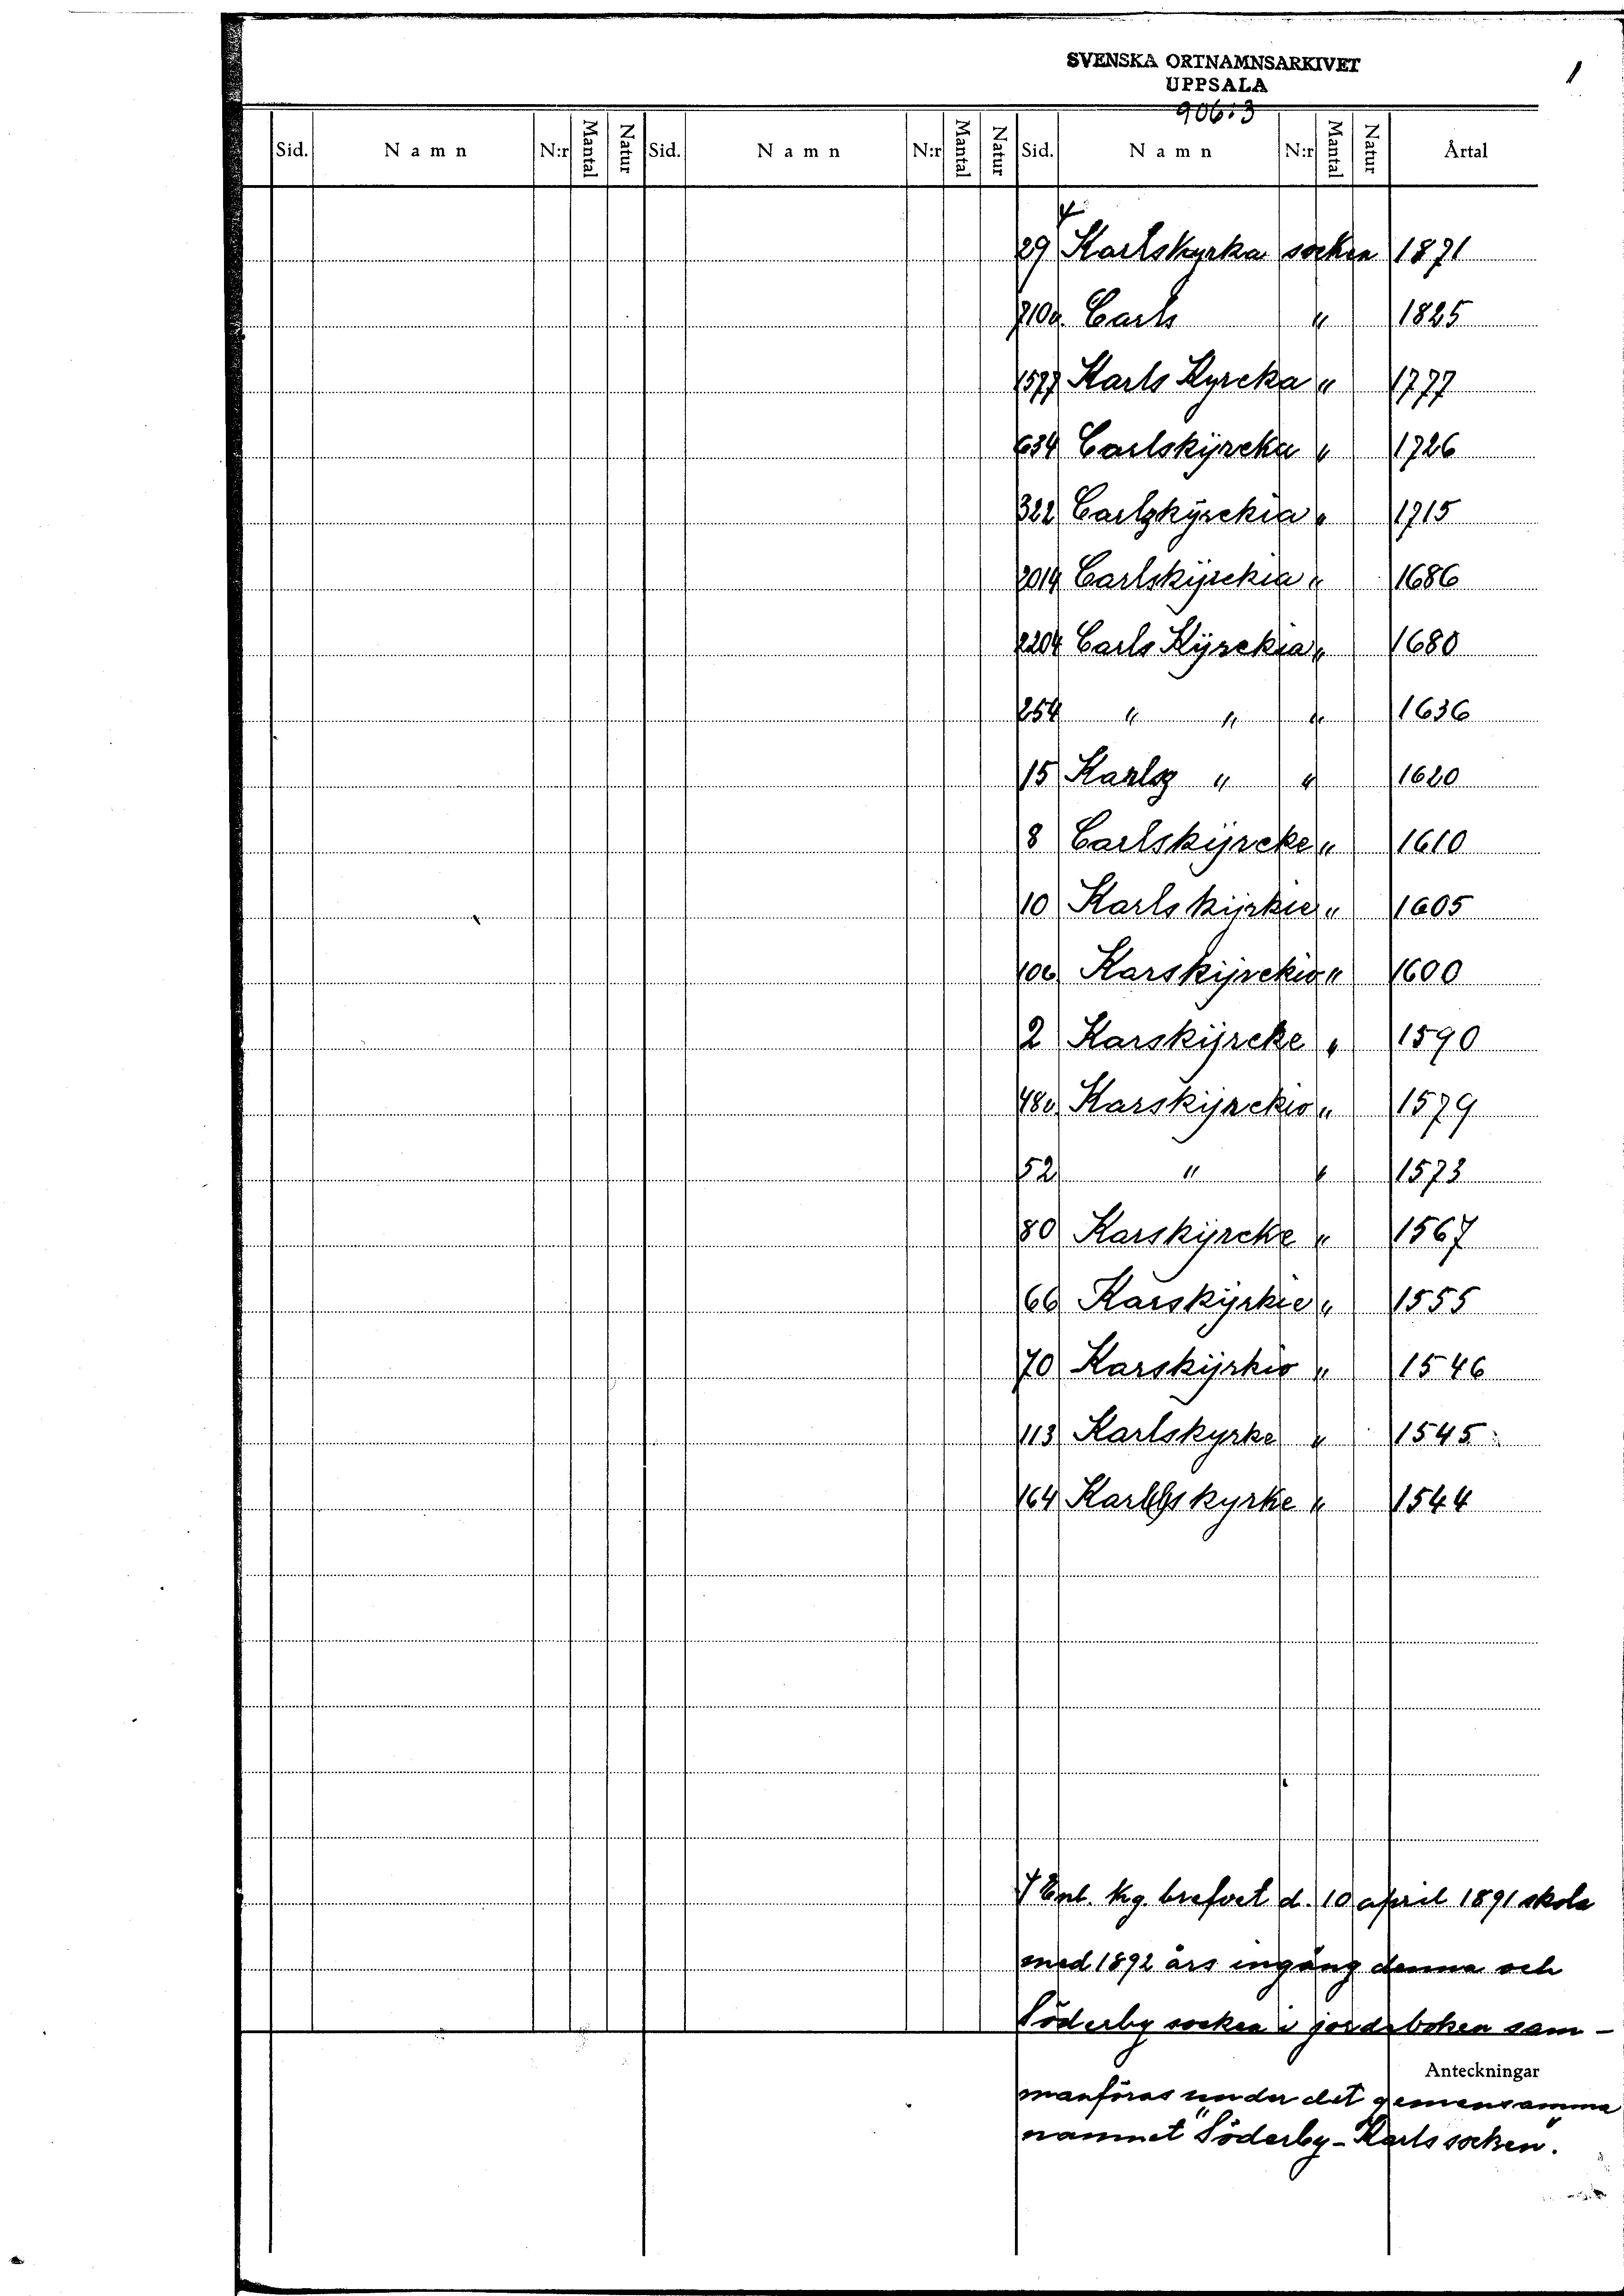 SVENSKA ORTNAMNSARKIVET
UPPSALA
1
906:3
Sid. Namn N:r Mantal Natur Sid. Namn N:r Mantal Natur Sid. Namn N:r Mantal Natur Årtal
29 Karlskyrka socken 1871
710v. Carls " 1825
1577 Karls Kyrcka " 1777
634 Carlskÿrcka " 1726
322 Carlzkÿrckia " 1715
2014 Carlskÿrckia " 1686
2204 Carls Kÿrckia " 1680
254 " " " 1636
15 Karlsz " " 1620
8 Carlskÿrcke " 1610
10 Karlskÿrkie " 1605
106 Karskÿrckio " 1600
2 Karskÿrcke " 1590
48v. Karskÿrckio " 1579
52 " " 1573
80 Karskÿrcke " 1567
66 Karskÿrkie " 1555
70 Karskÿrkio " 1546
113 Karlskyrke " 1545
164 skyrke " 1544
Enl. kg. brefvet d. 10 april 1891 skola
med 1892 års ingång denna och
Söderby socken i jordeboken sam-
Anteckningar
manföras under det gemensamma
namnet "Söderby-Karls socken".